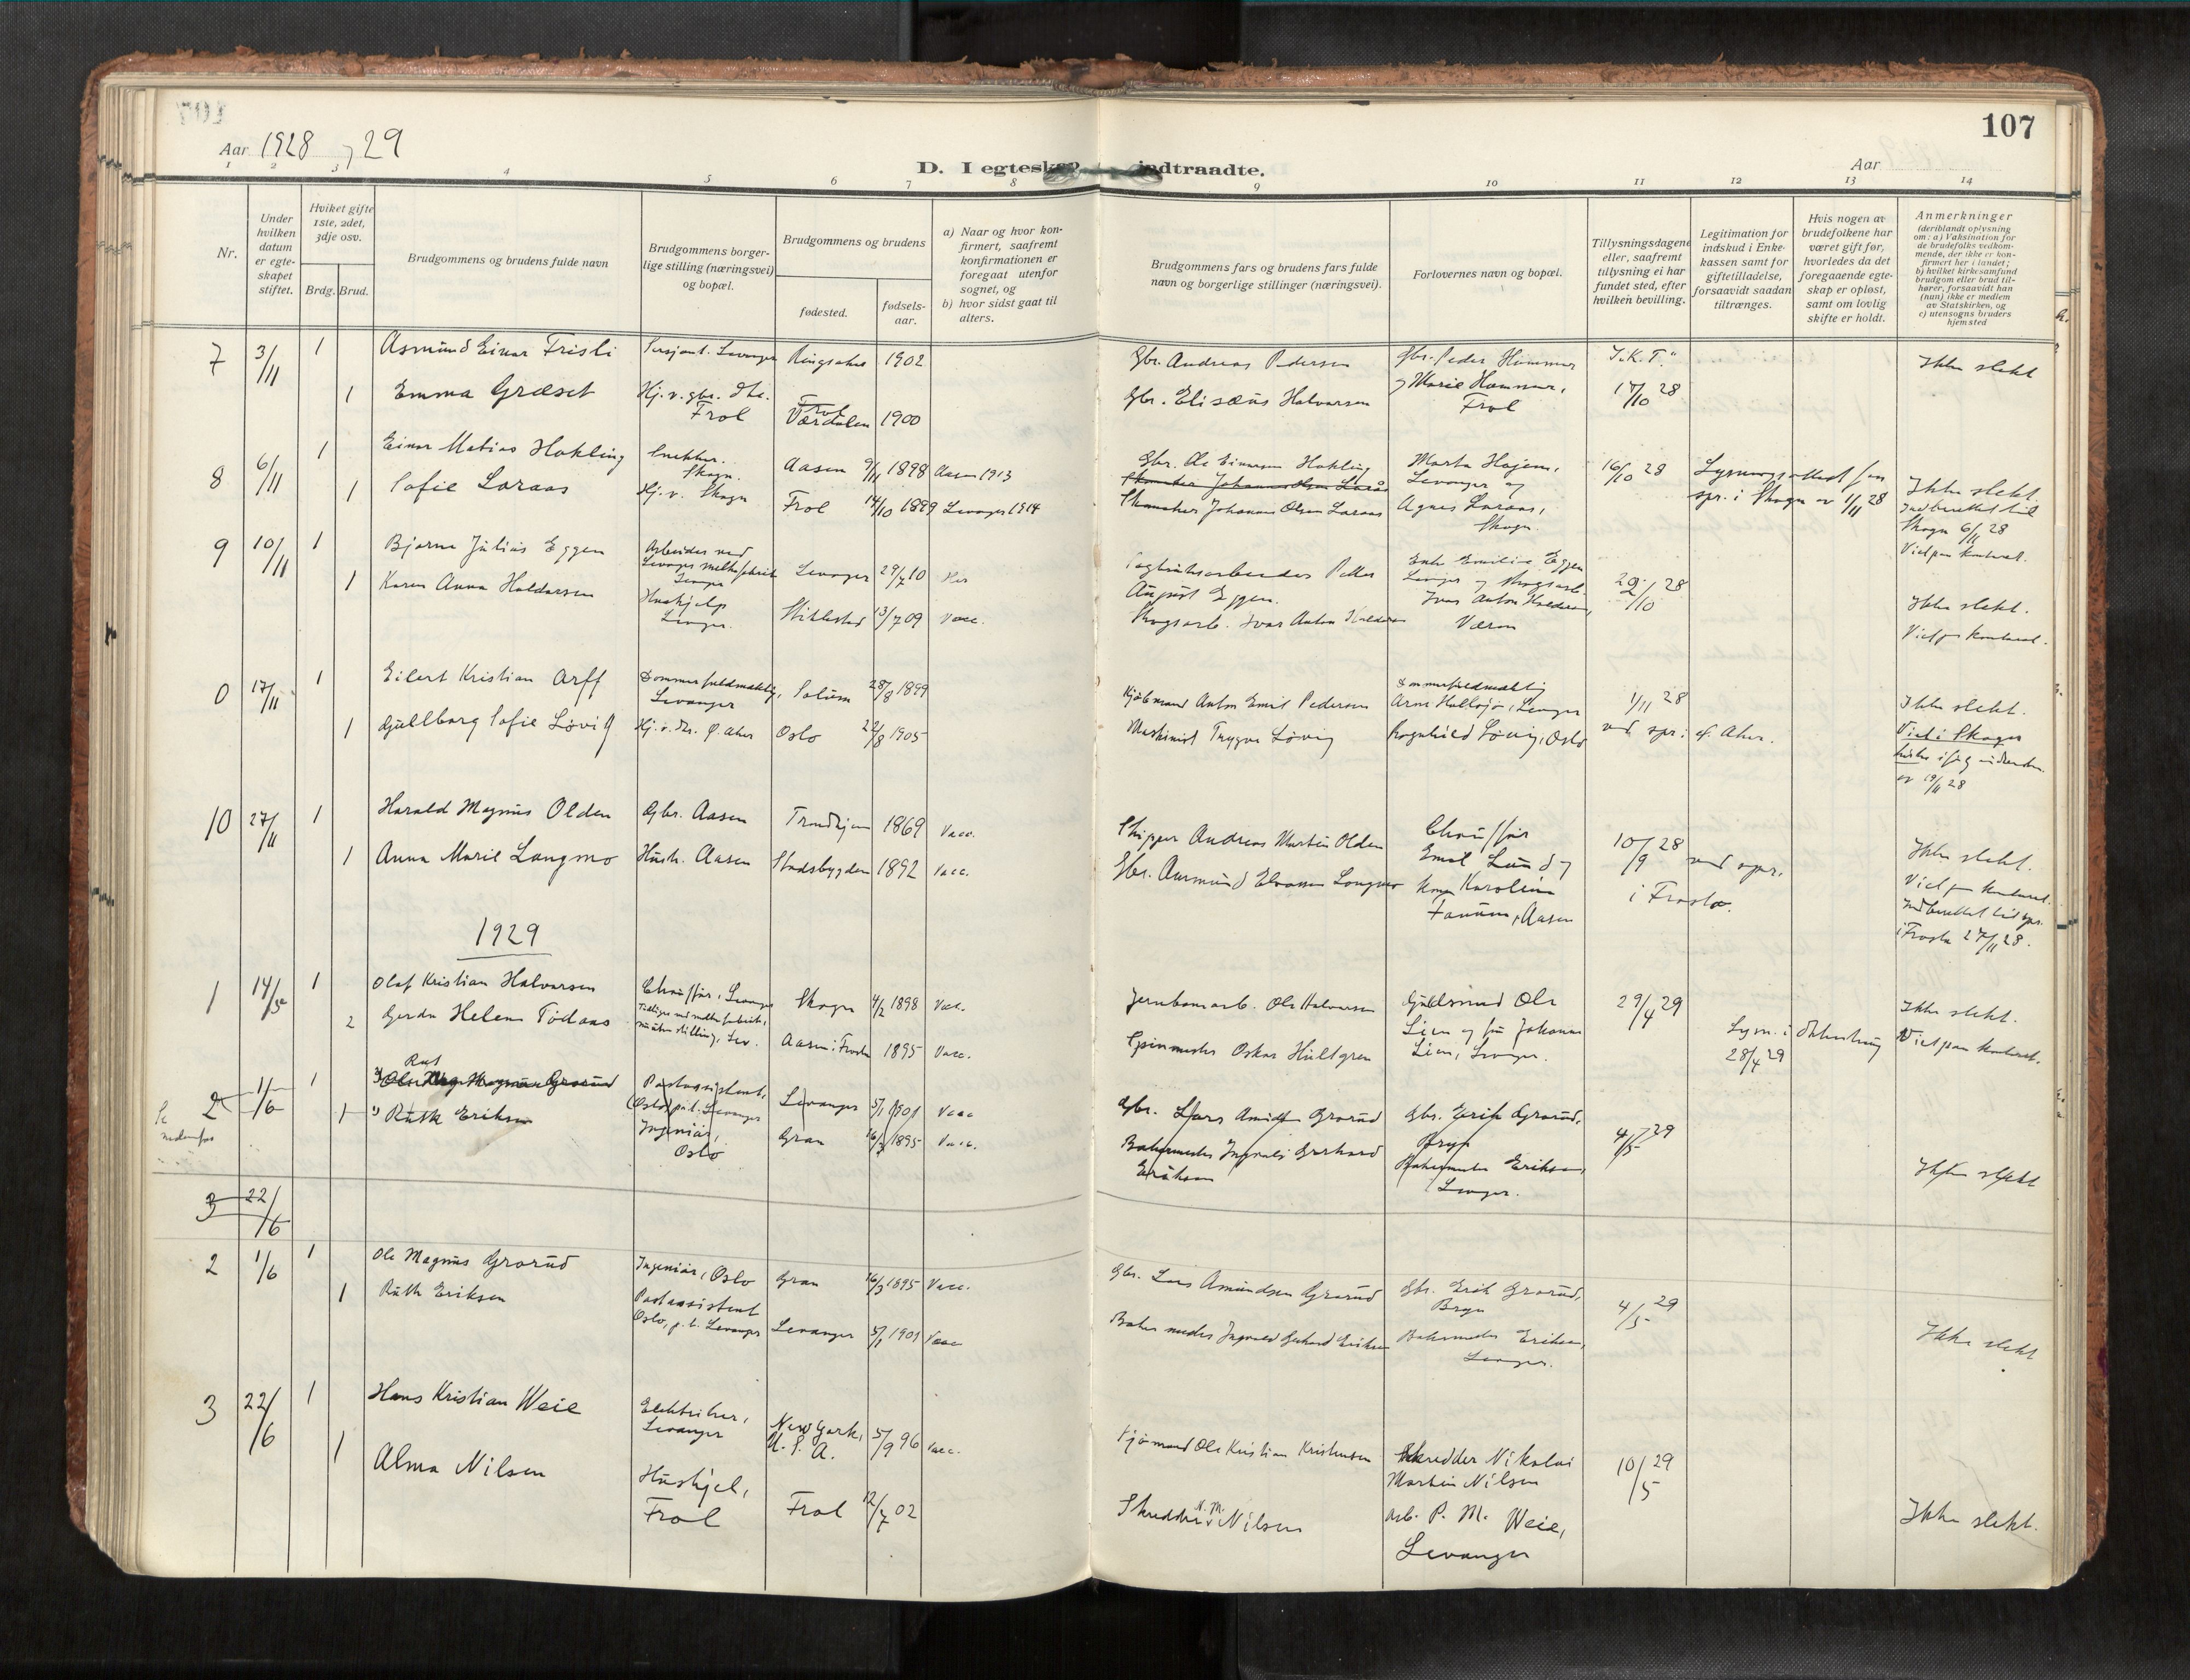 107
Aar 1928, 29
D. I egteskap indtraadte.
Aar
1 2 3 4 5 6 7 8 9 10 11 12 13 14
Nr.
Under hvilken datum er egteskapet stiftet.
Hviket gifte 1ste, 2det, 3dje osv.
Brdg. Brud.
Brudgommens og brudens fulde navn
Brudgommens borgerlige stilling (næringsvei) og bopæl.
Brudgommens og brudens
fødested.
fødselsaar.
a) Naar og hvor konfirmert, saafremt konfirmationen er foregaat utenfor sognet, og
b) hvor sidst gaat til alters.
Brudgommens fars og brudens fars fulde navn og borgerlige stillinger (næringsvei).
Forlovernes navn og bopæl.
Tillysningsdagene eller, saafremt tillysning ei har fundet sted, efter hvilken bevilling.
Legitimation for indskud i Enkekassen samt for giftetilladelse, forsaavidt saadan tiltrænges.
Hvis nogen av brudefolkene har været gift før, hvorledes da det foregaaende egteskap er opløst, samt om lovlig skifte er holdt.
Anmerkninger (deriblandt oplysning om: a) Vaksination for de brudefolks vedkommende, der ikke er konfirmert her i landet; b) hvilket kirkesamfund brudgom eller brud tilhører, forsaavidt han (hun) ikke er medlem av Statskirken, og c) utensogns bruders hjemsted
7 3/11 1 Asmund Einar Fristi Sersjant. Levanger Ringsaker 1902 Gbr. Andreas Pedersen Gbr. Peder Hammer J.K.T.
Ikke slekt
1 Emma Græset Hj. v. gbr. Frol Frol Værdalen 1900 Gbr. Elisæus Halvorsen og Marie Hammer, Frol 17/10 28
8 6/11 1 Einar Matias Hokling Snekker. Skogn. Aasen 9/11 1898 Aasen 1913 Gbr. Ole Einarsen Hokling Marta Hojem, Levanger og 16/10 28
Lysningsattest fra spr. i Skogn av 1/11 28
Skomaker Johannes Olsen Laraas
1 Sofie Laraas Hj. v. Skogn Frol 14/10 1899 Levanger 1914 Skomaker Johannes Olsen Laraas Agnes Laraas, Skogn.
Ikke slekt. Indberettet til Skogn 6/11 28 Viet paa kontoret.
9 10/11 1 Bjarne Julius Eggen Arbeider ved Levanger melkefabrik Levanger Levanger 29/7 10 Her Sagbruksarbeider Petter August Eggen. Enke Emilie Eggen Levanger og skogsarb. 29/10 28
1 Karen Anna Haldorsen Hushjelp Levanger. Stiklestad 13/7 09 Vacc. Skogsarb. Ivar Anton Haldorsen Ivar Anton Haldorsen, Væren
Ikke slekt.
Viet paa kontoret.
0 17/11 1 Eilert Kristian Arff Dommerfuldmektig, Levanger Solum 28/8 1899 Kjøbmand Anton Emil Pedersen Dommerfuldmektig Arne Hallsjø, Levanger 1/11 28
1 Gullborg Sofie Løvig Hj. v. Aker Oslo 22/8 1905 Maskinist Trygve Løvig Ragnhild Løvig, Oslo ved spr. i Aker.
Ikke slekt.
Viet i Skogn
10 27/11 1 Harald Magnus Olden Gbr. Aasen Trondhjem 1869 Vacc. Skipper Andreas Martin Olden Chauffør Emil Lund og 10/9 28 ved spr. i Frosta.
1 Anna Marie Langmo Hush. Aasen Stadsbygden 1892 Vacc. Gbr. Aamund Langmo Karoline Fanum, Aasen
Ikke slekt.
Viet paa kontoret.
Indberettet til spr. i Frosta 27/11 28.
1929
1 14/5 1 Olaf Kristian Halvorsen Chauffør, Levanger Skogn 4/2 1898 Vac. Jernbanearb. Ole Halvorsen Guldsmed Ole Lien og fru Johanna Lien, Levanger. 29/4 29
2 Gerda Helene Tødaas Tidligere ved melkefabrik, nu uten stilling, Lev. Aasen i Frosta 1895 Vacc. Spinmester Oskar Hultgren
Lysn. i 28/4 29
Ikke slekt. Viet paa kontoret.
2 1/6 1 Ole Magnus Grorud Postassistent, (Oslo) p.t. Levanger Levanger 5/1 1901 Vacc Gbr. Lars Amundsen Grorud Gbr. Erik Grorud, Bryn 4/5 29
Se nedenfor
1 Ruth Eriksen Ingeniør, Oslo Gran 16/3 1895 Vacc. Bakermester Ingvald Gerhard Eriksen Bakermester Eriksen, Levanger.
Ikke slekt
3 22/6
2 1/6 1 Ole Magnus Grorud Ingeniør, Oslo Gran 16/3 1895 Vacc. Gbr. Lars Amundsen Grorud Gbr. Erik Grorud, Bryn 4/5 29
1 Ruth Eriksen Postassistent Oslo, p.t. Levanger Levanger 5/1 1901 Vacc Bakermester Ingvald Gerhard Eriksen Bakermester Eriksen, Levanger.
Ikke slekt
3 22/6 1 Hans Kristian Weie Elektriker, Levanger New York, U.S.A. 5/9 96 Vacc. Sjømand Ole Kristian Kristensen Skredder Nikolai Martin Nilsen 10/5 29
1 Alma Nilsen Hushjel, Frol Frol 12/7 02 Skredder N. M. Nilsen arb. P. M. Weie, Levanger
Ikke slekt.